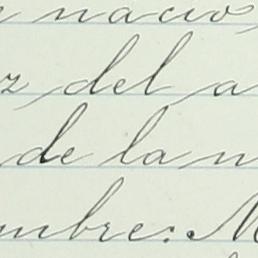 nacio
z del a
de la n
mbre: M